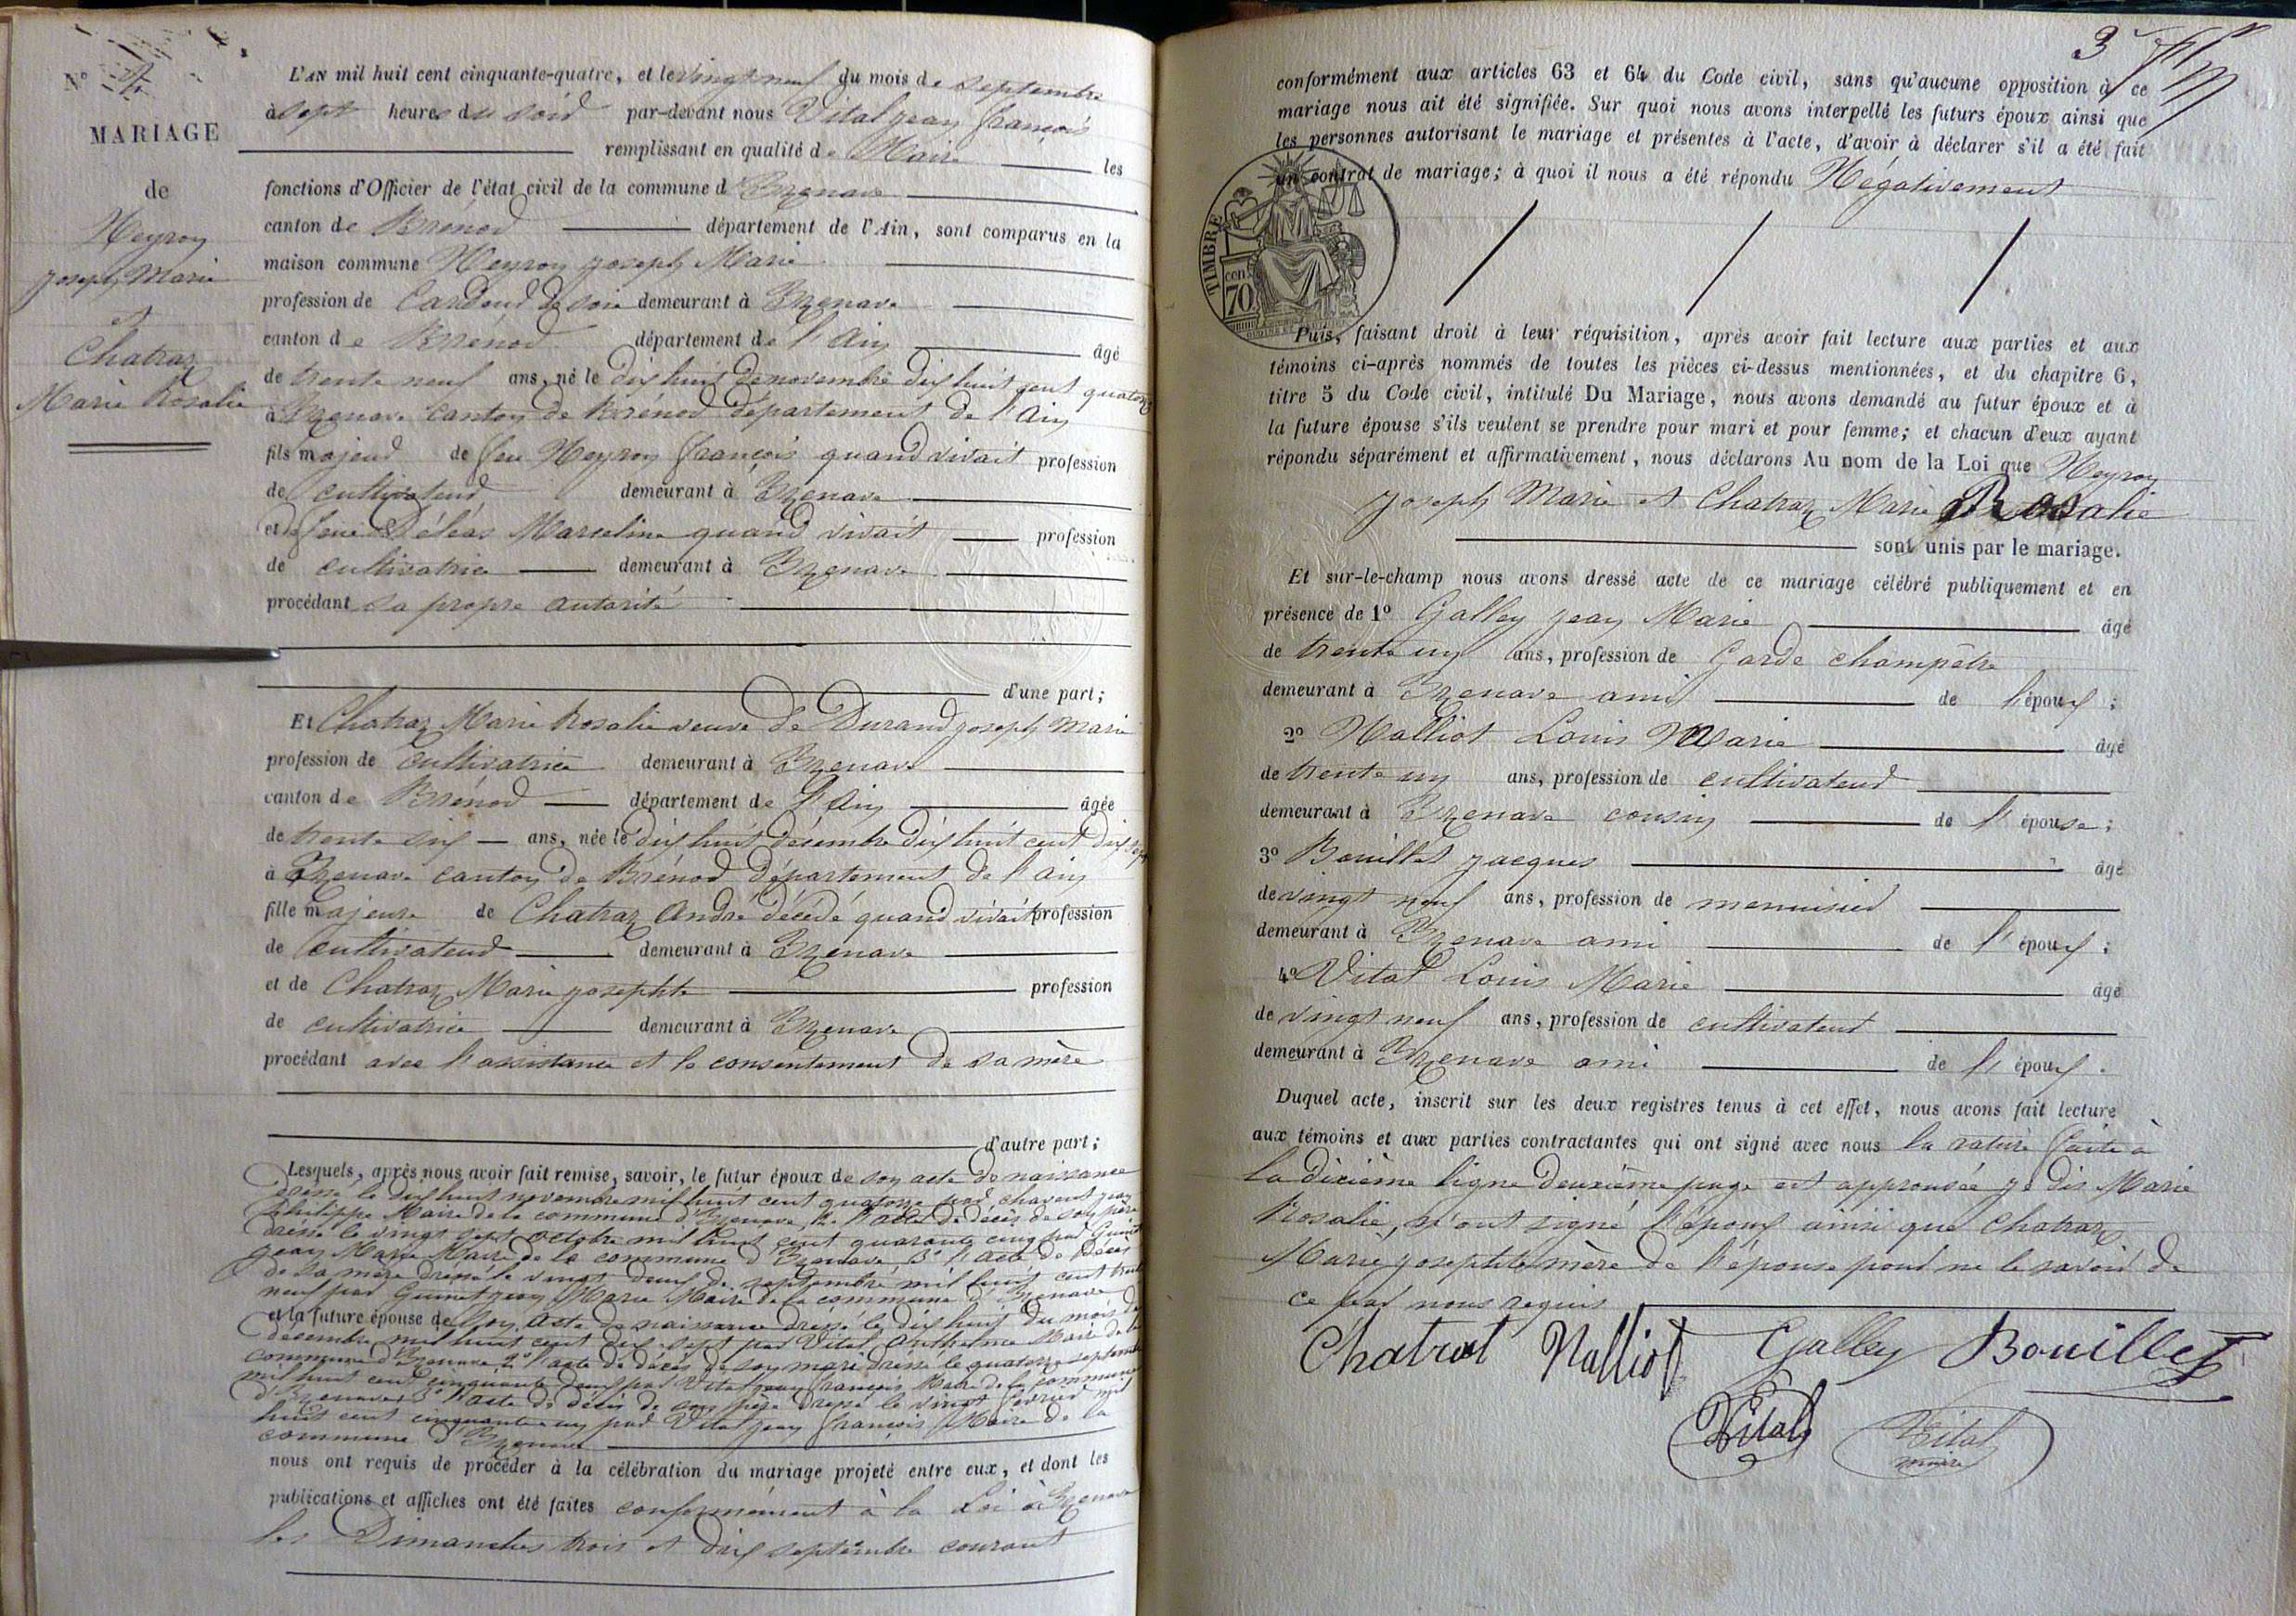 N° 4
MARIAGE
de
Neyron
Joseph Marie
et
Chatraz
Marie Rosalie
L'AN mil huit cent cinquante-quatre, et le vingt neuf du mois de septembre
à sept heures du soir par-devant nous Vital jean françois
remplissant en qualité de Maire les
fonctions d'Officier de l'état civil de la commune d'Izenave
canton de Brénod département de l'Ain, sont comparus en la
maison commune Neyron joseph Marie
profession de Cardeur de soie demeurant à Izenave
canton de Brénod département de l'Ain âgé
de trente neuf ans, né le dix huit de novembre dix huit cent quatorze
à Izenave canton de Brénod département de l'Ain
fils majeur de feu Neyron françois quand vivait profession
de cultivateur demeurant à Izenave
et de feue Déléas Marceline quand vivait profession
de cultivatrice demeurant à Izenave
procédant sa propre autorité
d'une part;
Et Chatraz Marie Rosalie veuve de Durand joseph Marie
profession de cultivatrice demeurant à Izenave
canton de Brénod département de l'Ain âgée
de trente six ans, née le dix huit décembre dix huit cent dix sept
à Izenave canton de Brénod département de l'Ain
fille majeure de Chatraz André décédé quand vivait profession
de cultivateur demeurant à Izenave
et de Chatraz Marie josephte profession
de cultivatrice demeurant à Izenave
procédant avec l'assistance et le consentement de sa mère
d'autre part;
Lesquels, après nous avoir fait remise, savoir, le futur époux de son acte de naissance
dressé le dix huit novembre mil huit cent quatorze par chavent jean
philippe Maire de la commune d'Izenave, 2° l'acte de décès de son père
dressé le vingt sept octobre mil huit cent quarante cinq par Guinet
jean Marie Maire de la commune d'Izenave, 3° l'acte de décès
de sa mère dressé le vingt deux de septembre mil huit cent trente
neuf par Guinet jean Marie Maire de la commune d'Izenave
et la future épouse de son acte de naissance dressé le dix huit du mois de
décembre mil huit cent dix sept par Vital Anthelme Maire de la
commune d'Izenave 2° l'acte de décès de son mari dressé le quatorze septembre
mil huit cent cinquante deux par Vital jean françois Maire de la commune
d'Izenave 3° l'acte de décès de son père dressé le vingt février mil
huit cent cinquante un par Vital jean françois Maire de la
commune d'Izenave
nous ont requis de procéder à la célébration du mariage projeté entre eux, et dont les
publications et affiches ont été faites conformément à la Loi à Izenave
les Dimanches trois et dix septembre courant
3
conformément aux articles 63 et 64 du Code civil, sans qu'aucune opposition à ce
mariage nous ait été signifiée. Sur quoi nous avons interpellé les futurs époux ainsi que
les personnes autorisant le mariage et présentes à l'acte, d'avoir à déclarer s'il a été fait
un contrat de mariage; à quoi il nous a été répondu Négativement
TIMBRE
cen. 70
Puis, faisant droit à leur réquisition, après avoir fait lecture aux parties et aux
témoins ci-après nommés de toutes les pièces ci-dessus mentionnées, et du chapitre 6,
titre 5 du Code civil, intitulé Du Mariage, nous avons demandé au futur époux et à
la future épouse s'ils veulent se prendre pour mari et pour femme; et chacun d'eux ayant
répondu séparément et affirmativement, nous déclarons Au nom de la Loi que Neyron
joseph Marie et Chatraz Marie Rosalie
sont unis par le mariage.
Et sur-le-champ nous avons dressé acte de ce mariage célébré publiquement et en
présence de 1° Galley jean Marie âgé
de trente un ans, profession de Garde champêtre
demeurant à Izenave ami de l'époux;
2° Nalliot Louis Marie âgé
de trente un ans, profession de cultivateur
demeurant à Izenave cousin de l'épouse;
3° Bouillet jacques âgé
de vingt neuf ans, profession de menuisier
demeurant à Izenave ami de l'époux;
4° Vital Louis Marie âgé
de vingt neuf ans, profession de cultivateur
demeurant à Izenave ami de l'époux.
Duquel acte, inscrit sur les deux registres tenus à cet effet, nous avons fait lecture
aux témoins et aux parties contractantes qui ont signé avec nous la rature faite à
la dixième ligne deuxième page est approuvée je dis Marie
Rosalie, n'ont signé l'époux ainsi que Chatraz
Marie josephte mère de l'épouse pour ne le savoir de
ce par nous requis
Chatrat Nalliot Galley Bouillet
Vital Vital
maire